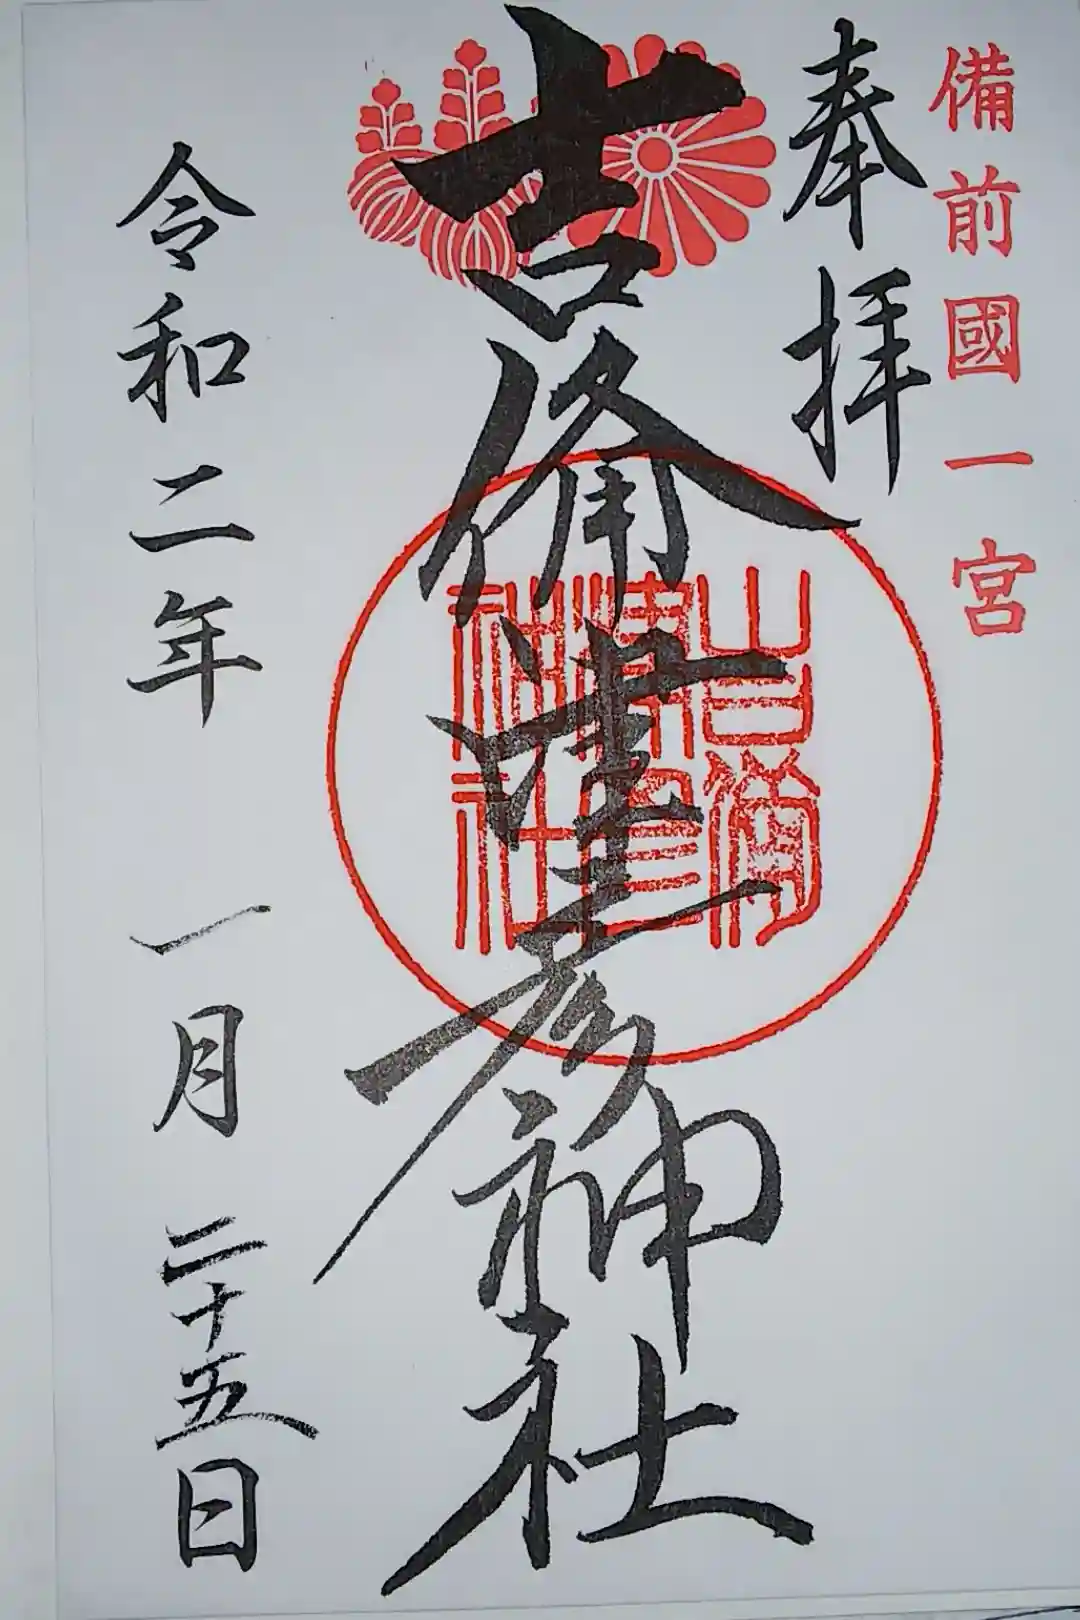 備前國一宮
奉拝
吉備津彦神社
吉備
津彦
神社
令和二年 一月 二十五日